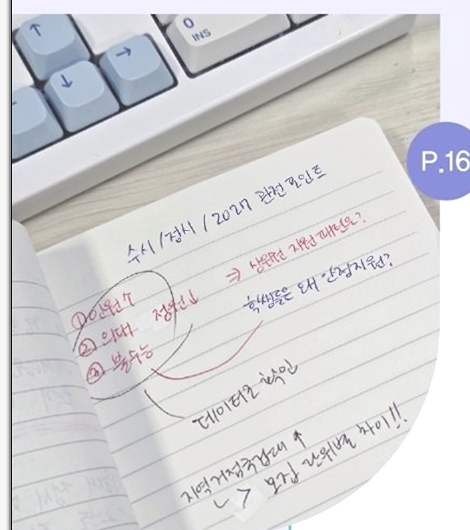 0
INS
P.16
수시/정시/2027 관전 포인트
①인원↑
②의대 정원↓
③불수능
⇒ 상위권 지원 패턴은?
학생들은 왜 안정지원?
데이터로 확인
지역거점국립대 ↑
모집 단위별 차이!!